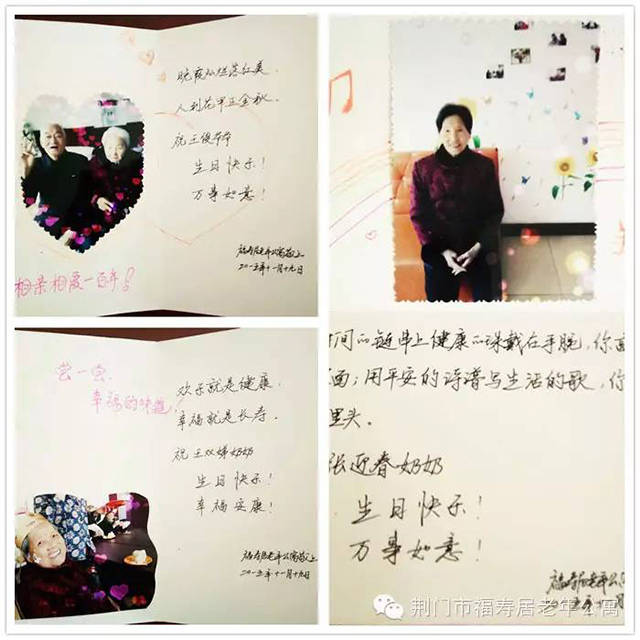 晚霞灿烂落红美,
人到花甲正金秋。
祝王俊华爷
生日快乐!
万事如意!
福寿居老年公寓敬上
二○一五年十一月十九日
相亲相爱一百年!
尝一尝
幸福的味道!
欢乐就是健康,
幸福就是长寿。
祝王双娣奶奶
生日快乐!
幸福安康!
福寿居老年公寓敬上
二○一五年十一月十九日
时间的链串上健康的珠戴在手腕,你
面;用平安的诗谱写生活的歌,你
里头。
张迎春奶奶
生日快乐!
万事如意!
福寿居老年公
荆门市福寿居老年公寓